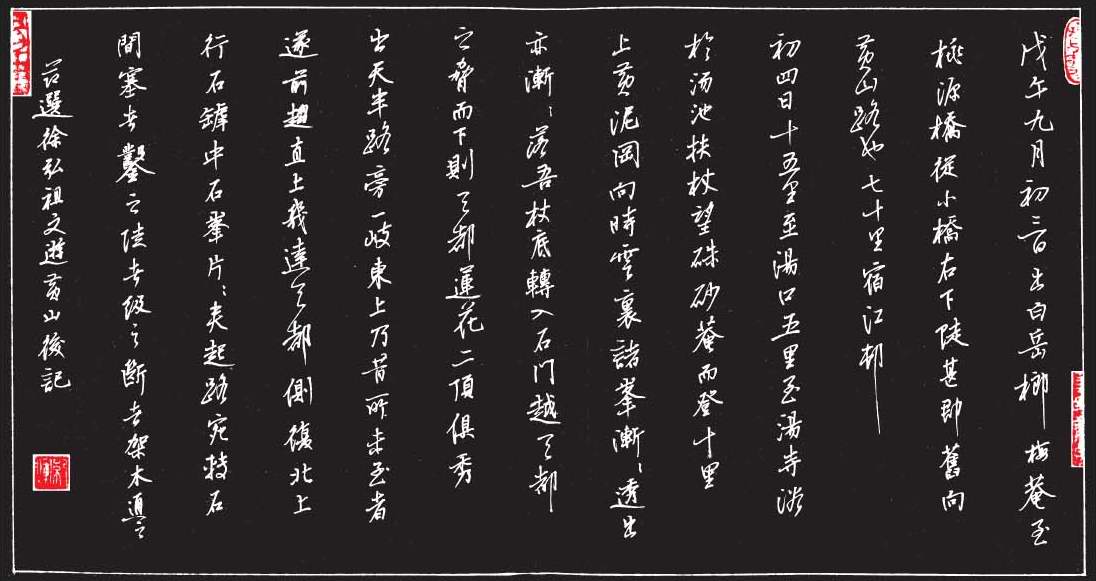 戊午九月初三日出白岳榔梅菴至
桃源橋從小橋右下陡甚即舊向
黄山路也七十里宿江邨
初四日十五里至湯口五里至湯寺浴
於汤池扶杖望硃砂菴而登十里
上黄泥岡向時雲裏諸峯漸〻透出
亦漸〻落吾杖底轉入石門越天都
之脅而下則天都蓮花二頂俱秀
出天半路旁一歧東上乃昔所未至者
遂前趨直上幾達天都側復北上
行石罅中石峯片〻夾起路宛轉石
間塞者鑿之陡者級之斷者架木通之
節選徐弘祖文遊黄山後記